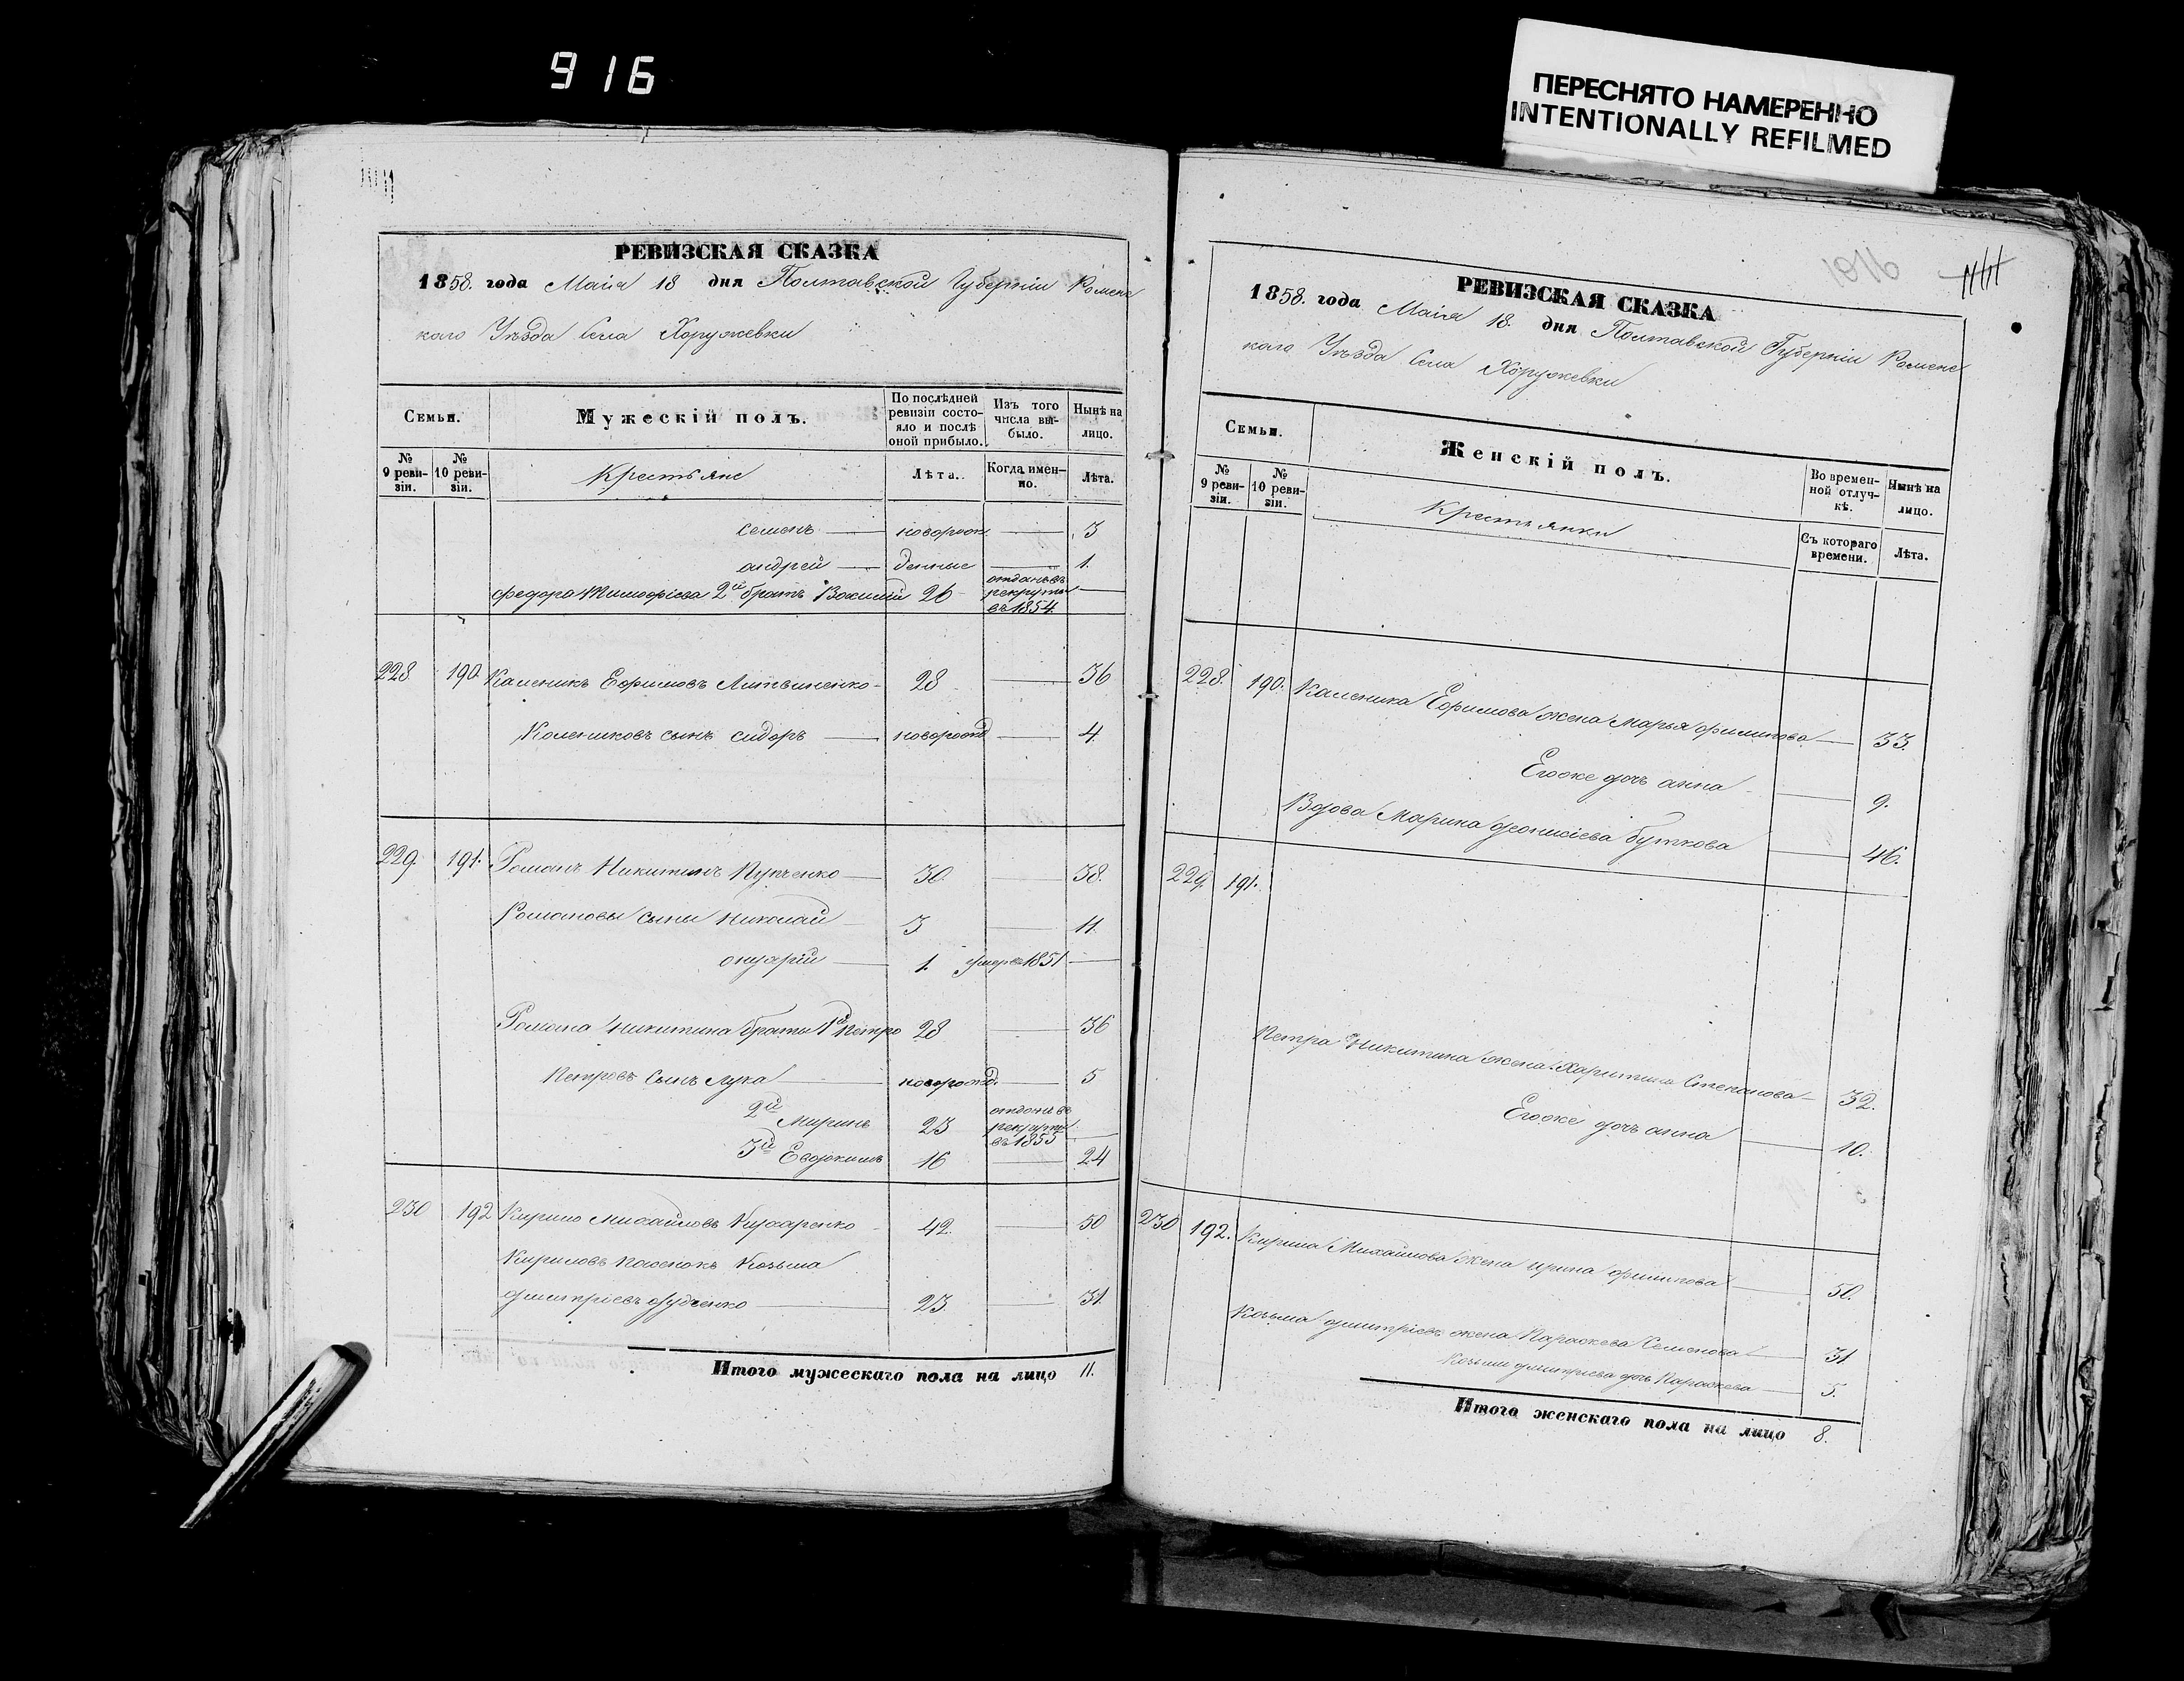 916
ПЕРЕСНЯТО НАМЕРЕННО
INTENTIONALLY REFILMED
РЕВИЗСКАЯ СКАЗКА
1858. года Маія 18 дня Полтавской Губерніи Роменс
каго Уѣзда Села Хоружевки
Семьи.
Мужескій полъ.
По послѣдней ревизіи состояло и послѣ оной прибыло.
Изъ того числа выбыло.
Нынѣ на лицо.
№ 9 ревизіи.
№ 10 ревизіи.
Крестьяне
Лѣта.
Когда именно.
Лѣта.
семенъ новорож 3
андрей денные 1.
федора Тимофіева 2й братъ 26 отданъ въ рекруты въ 1854.
228 190 Каленикъ Ефимовъ Литвиненко 28 36
Колениковъ сынъ сидоръ новорожд 4.
229. 191. Романъ Никитинъ 30. 38.
Романовы сыны Николай 3 11.
1. умеръ 1851
Романа Никитина братья 1й Петро 28 36
Петровъ сынъ Лука новорожд. 5
2й Миронъ 23 отданъ въ рекруты въ 1855
3й Евдокимъ 16 24
230 192 Кирило Михайловъ Кухаренко 42. 50
Кириловъ пасенокъ Козьма
дмитріевъ 23. 31.
Итого мужескаго пола на лицо 11.
1016
РЕВИЗСКАЯ СКАЗКА
1858. года Маія 18. дня Полтавской Губерніи Роменс
каго Уѣзда Села Хоружевки
Семьи.
Женскій полъ.
Во временной отлучкѣ.
Нынѣ на лицо.
№ 9 ревизіи.
№ 10 ревизіи.
Крестьянки
Съ котораго времени.
Лѣта.
228. 190. Каленика Ефимова жена Марья филипова 33.
Егоже дочь анна 9.
Вдова Марина деонисіева буткова 46.
229. 191.
Петра Никитина жена Харитина Степанова 32.
Егоже дочь анна 10.
230 192. Кирила Михайлова жена ирина филипова 50.
Козьма дмитріевъ жена Параскева Семенова 31
Козьми дмитріева дочь Параскева 5.
Итого женскаго пола на лицо 8.